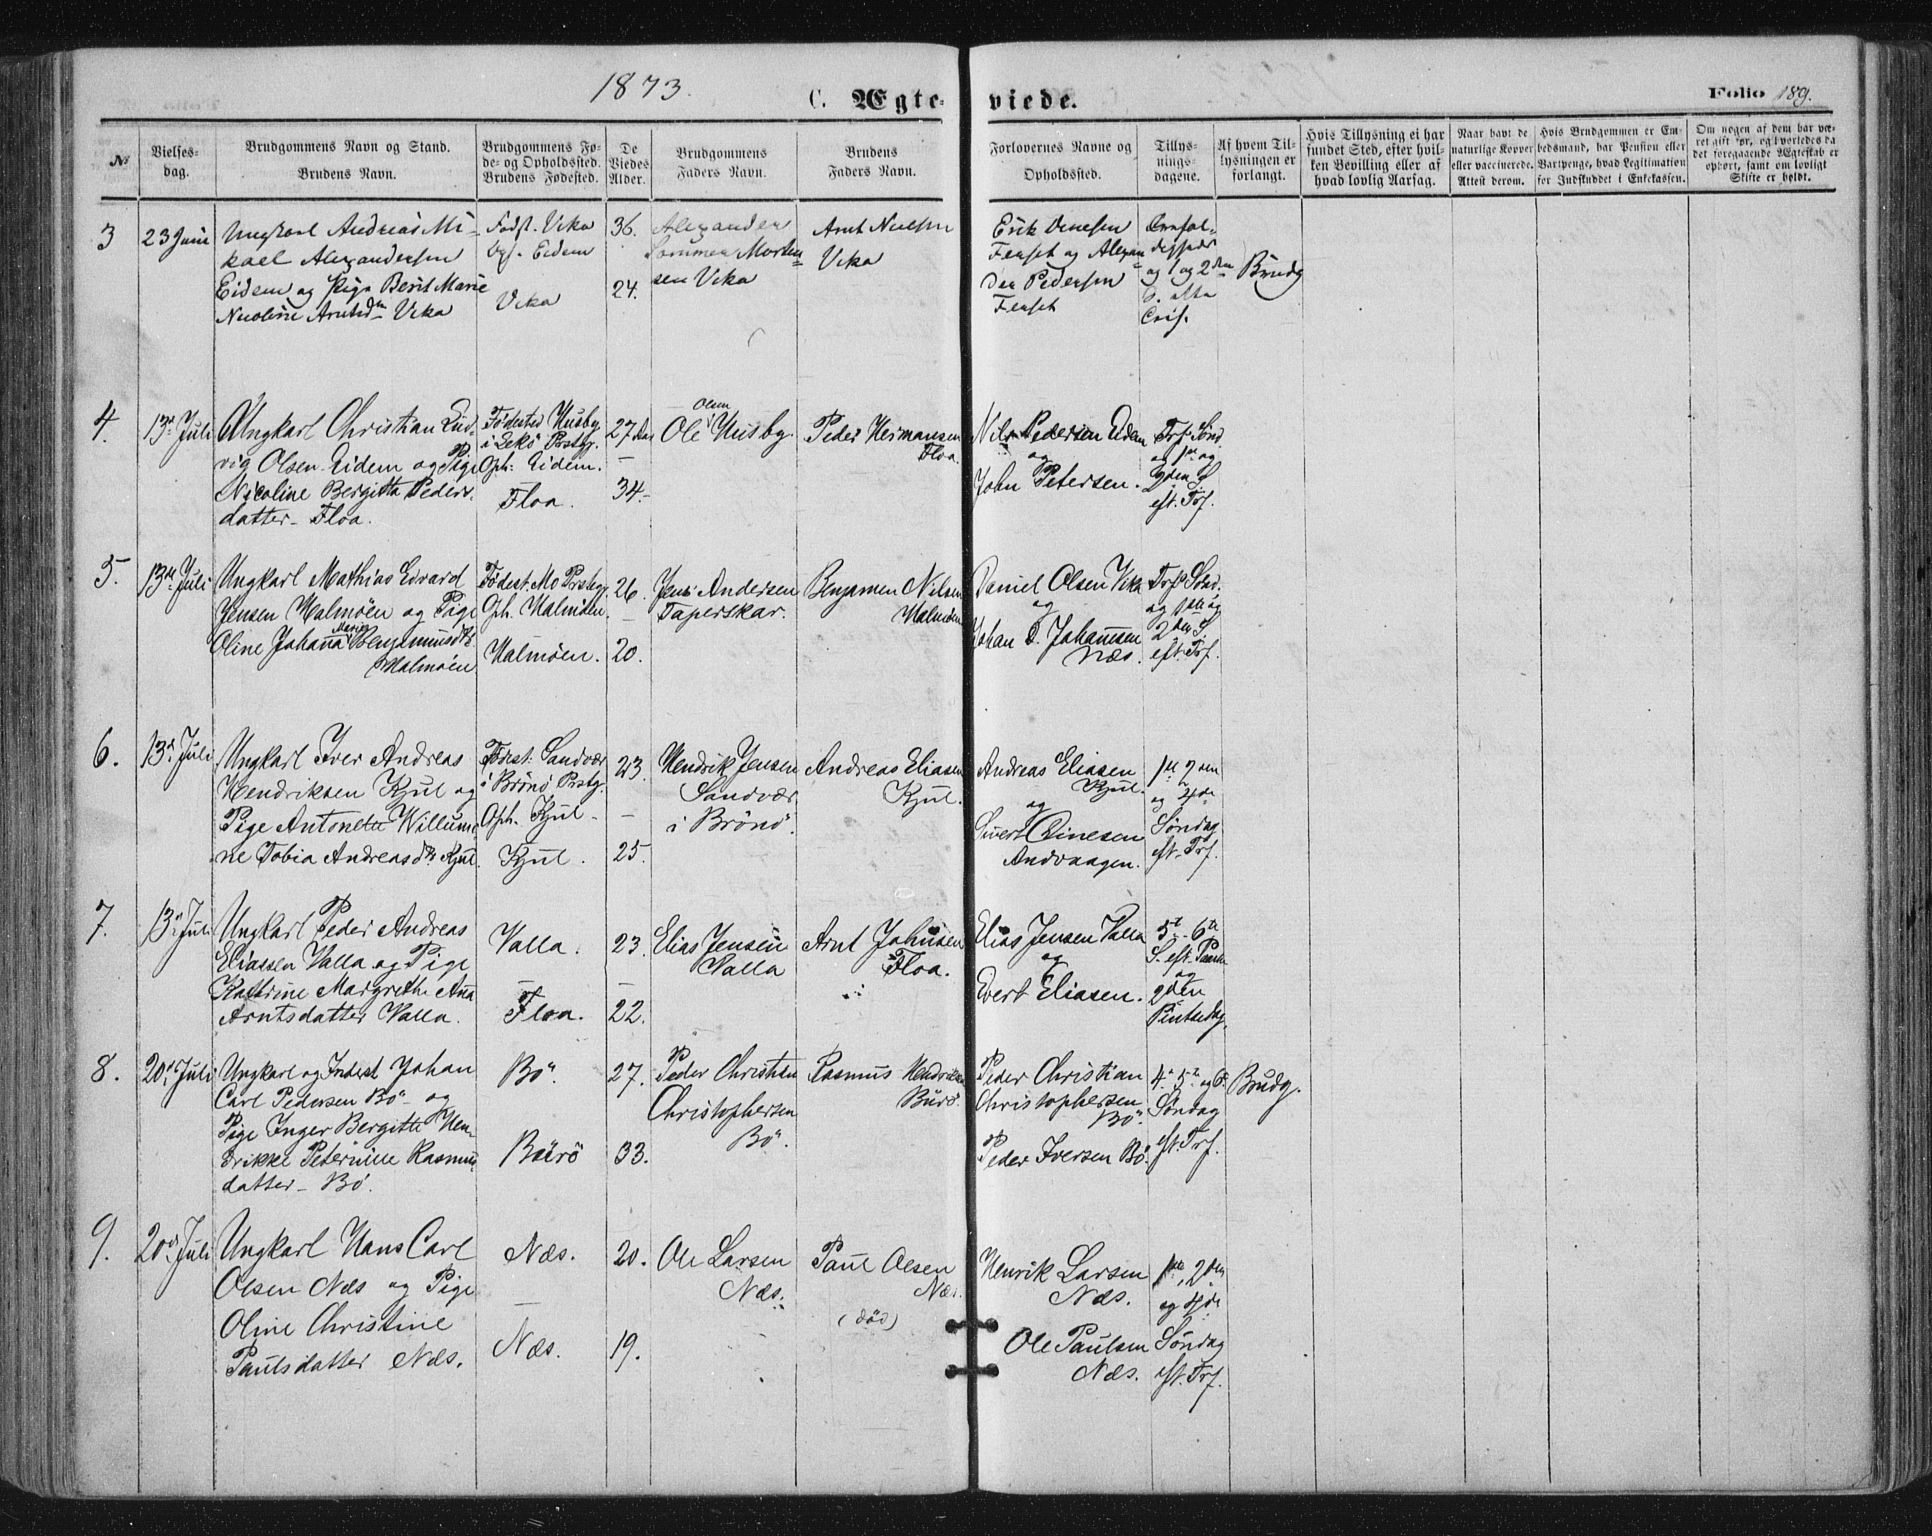 1873.
C. Ægte- viede.
Folio 189.
№
Vielses-
dag.
Brudgommens Navn og Stand.
Brudens Navn.
Brudgommens Fø-
de- og Opholdsted.
Brudens Fødested.
De
Viedes
Alder.
Brudgommens
Faders Navn.
Brudens
Faders Navn.
Forlovernes Navne og
Opholdssted.
Tillys-
nings-
dagene.
Af hvem Til-
lysningen er
forlangt.
Hvis Tillysning ei har
fundet Sted, efter hvil-
ken Bevilling eller af
hvad lovlig Aarsag.
Naar havt de
naturlige Kopper
eller vaccinerede.
Attest derom.
Hvis Brudgommen er Em-
bedsmand, har Pension eller
Vartpenge, hvad Legitimation
for Indskuddet i Enkekassen.
Om nogen af dem har væ-
ret gift før, og hvorledes da
det foregaaende Ægteskab er
ophørt, samt om lovligt
Skifte er holdt.
3
23 Juni
Ungkarl Andreas Mi-
kael Alexandersen
Eidem og Pige Berit Marie
Nicoline Arntsd. Vika
Fødst. Vika
Eidem
Vika
36.
24.
Alexander
Morten=
sen Vika
Arnt
Vika
Erik
og Alexan=
der Pedersen
og 1 og 2den
Brudg
4.
13de Juli
Ungkarl Christian Lud-
vig Olsen Eidem og Pige
Nicoline Bergitta Peders-
datter - Floa.
Fødested Husby
i Lekø Prstg.
Oph: Eidem.
Floa.
27 Aar
34.
Ole Olsen Husby.
Peder Hermansen
Floa.
Nils Pedersen Eidem
og
John Petersen.
Trf. Sønd.
og 1ste og
2den S.
eft. Trf.
5.
13de Juli
Ungkarl Mathias Edvard
Jensen Halmøen og Pige
Oline Johana Marie Benjaminsdtr
Halmøen
Fødest. Mo Prstg.
Oph. Halmøen.
Halmøen.
26.
20.
Jens Andersen
Taperskar.
Benjamen Nilsen
Halmøen
Daniel Olsen Vika
og
Johan D. Johannsen
Næs.
Trf. Sønd.
og 1ste og
2den S.
eft. Trf.
6.
13de Juli
Ungkarl Iver Andreas
Hendriksen Kjul og
Pige Antonette Willum-
ne Tobia Andreasdtr Kjul.
Fødest: Sandvær
i Brønø Prstg.
Oph. Kjul -
Kjul.
23.
25.
Hendrik Jensen
Sandvær
i Brønø.
Andreas Eliasen
Kjul.
Andreas Eliasen
Kjul.
og
Sivert
Andvaagen.
1ste 2den
og 4de
Søndag
eft. Trf.
7.
13de Juli
Ungkarl Peder Andreas
Eliassen Valla og Pige
Kathrine Margrethe Ana
Arntsdatter Valla.
Valla.
Floa.
23.
22.
Elias Jensen
Valla
Arnt Johnsen
Floa.
Elias Jensen Valla
og
Evert Eliasen.
5te 6te
S. eft. Paaske
og
2den
Pintsedag.
8.
20de Juli
Ungkarl og Inderst Johan
Carl Pedersen Bø og
Pige Inger Bergitte Hen-
drikke Peternille Rasmus-
datter - Bø.
Bø
Burø
27.
33.
Peder Christian
Christophersen
Bø.
Rasmus Hendriksen
Burø.
Peder Christian
Christophersen
Bø.
Peder Iversen Bø.
4de 5te og 6te
Søndag
eft. Trf.
Brudg.
9.
20de Juli
Ungkarl Hans Carl
Olsen Næs og Pige
Oline Christine
Paulsdatter Næs.
Næs.
Næs.
20.
19.
Ole Larsen
Næs.
Paul Olsen
Næs.
(død)
Henrik Larsen
Næs.
Ole Paulsen
Næs.
1ste, 2den
og 4de
Søndag
eft. Trf.